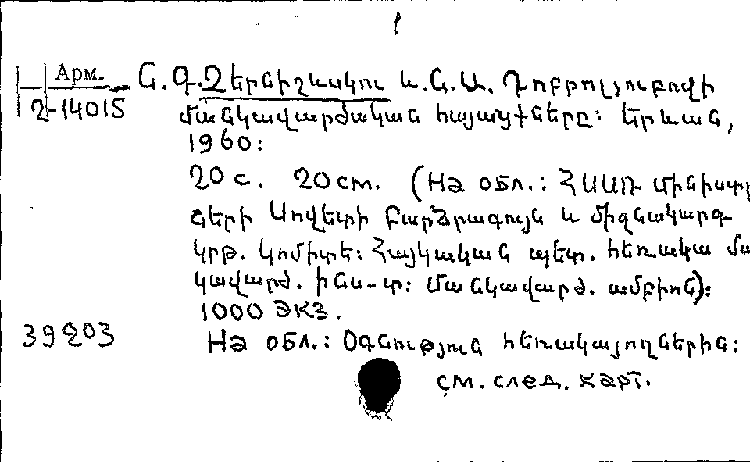 Арм.
2-14015
Ն. Գ. Չերնիշևսկու և Ն. Ա. Դոբրոլյուբովի
մանկավարժական հայացքները: Երևան,
1960:
20 с. 20 см. (На обл.: ՀՍՍՌ Մինիստր
ների Սովետի Բարձրագույն և միջնակարգ
կրթ. կոմիտե: Հայկական պետ. հեռակա մա
կավարժ. ինս-տ: Մանկավարժ. ամբիոն):
1000 экз.
39203
На обл.: Օգնություն հեռակայողներին:
см. след. карт.